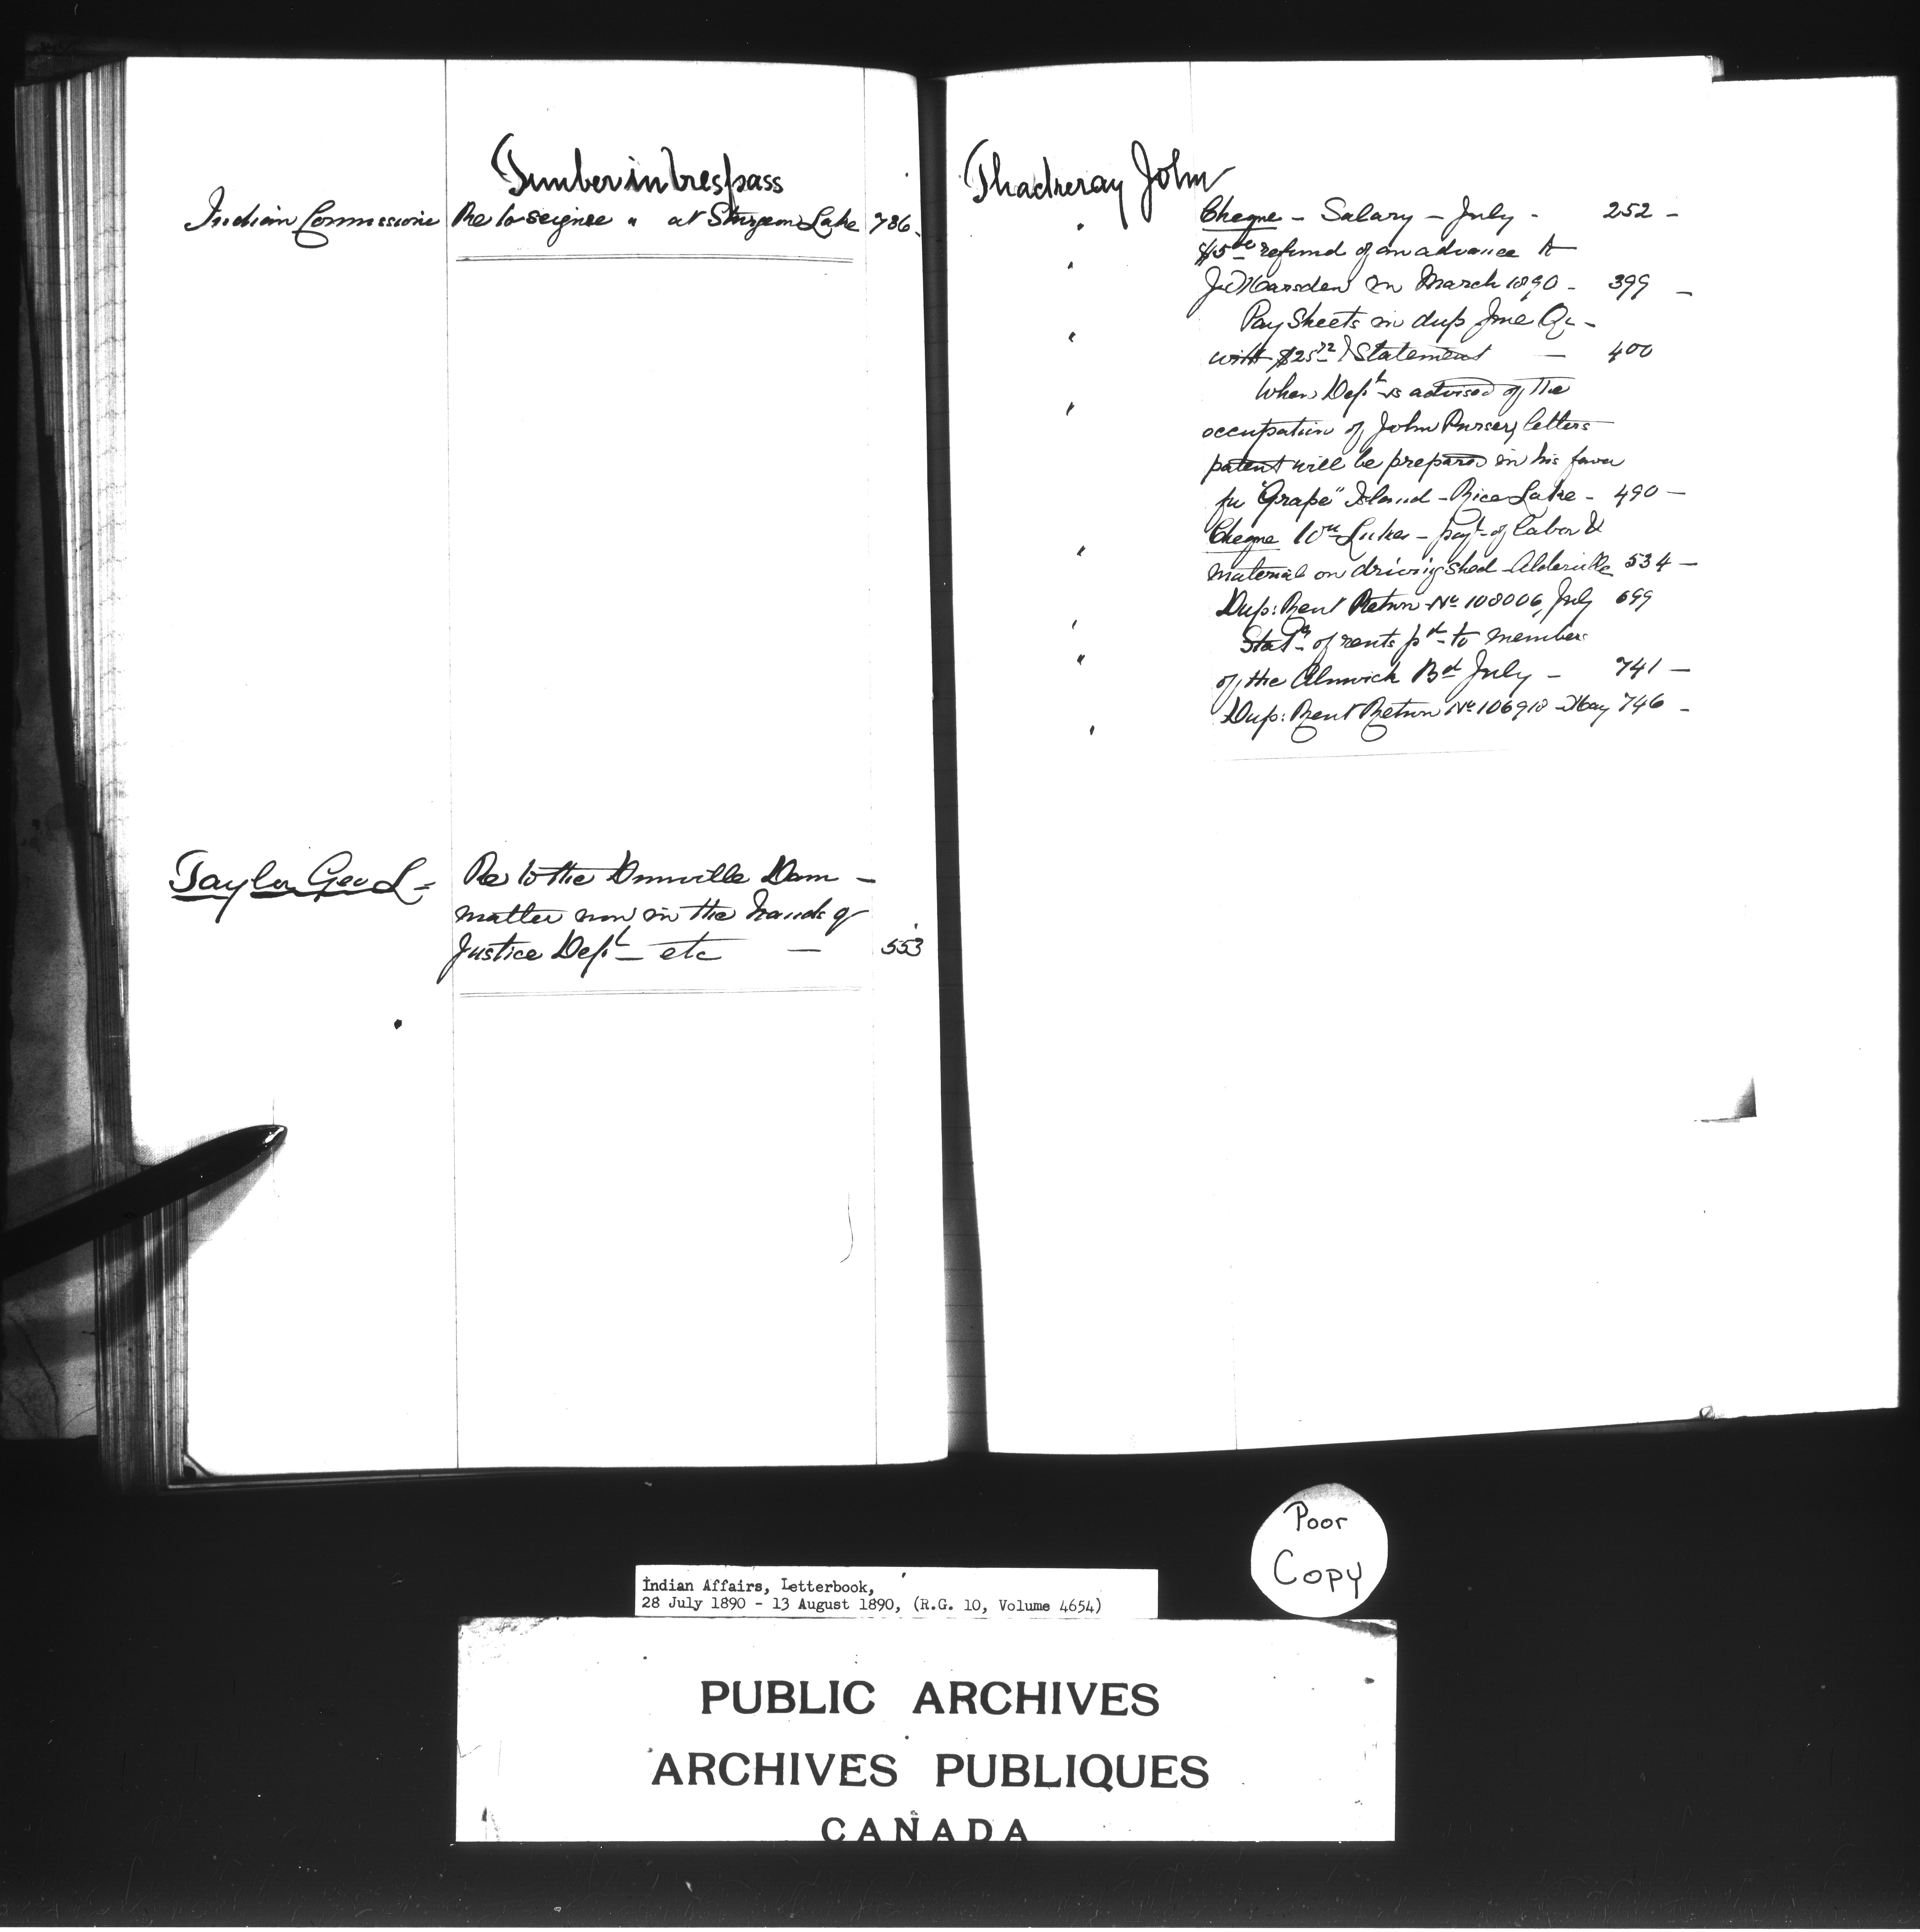 Timber in trespass
Indian Commissione Re to seizure " at Sturgeon Lake 786.
Taylor Geo L = Re to the Dunnville Dam —
matter now in the hands of
Justice Dept — etc — 553
Thackeray John
Cheque — Salary — July - 252 —
" $15 refund of an advance to
J. Marsden in March 1890 - 399 —
" Pay Sheets in dup June Qr -
with $25 Statement — 400
" When Dept is advised of the
occupation of John Pursey letters
patent will be prepared in his favor
for "Grape" Island - Rice Lake - 490 —
" Cheque Wm Lukes - payt of labor &
material on driving shed - Alderville 534 —
" Dup: Rent Return No 108006, July 699
" Statt of rents pd to members
of the Alnwick Bd July - 741 —
" Dup: Rent Return No 106918 - May 746 -
Poor
Copy
Indian Affairs, Letterbook,
28 July 1890 - 13 August 1890, (R.G. 10, Volume 4654)
PUBLIC ARCHIVES
ARCHIVES PUBLIQUES
CANADA